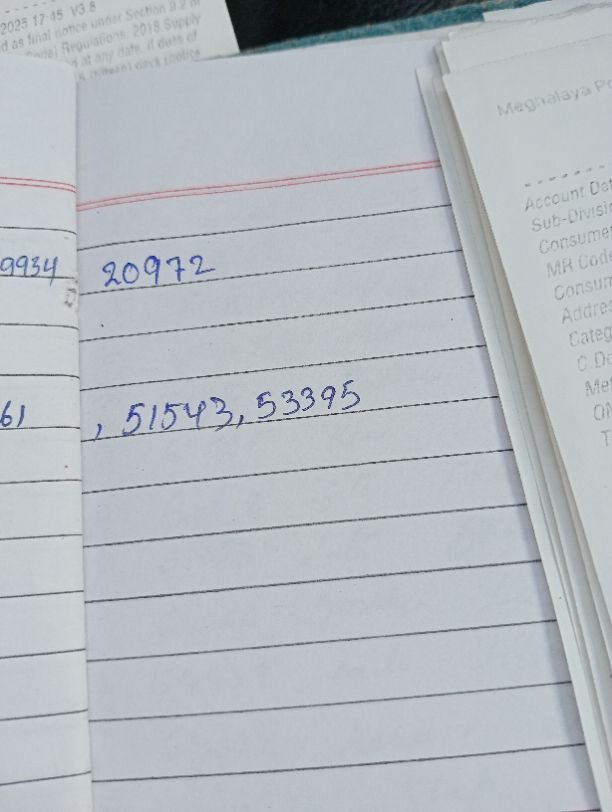 2025 17:45 V3.8
d as final notice under Section 9.2 of
Code) Regulations, 2018 Supply
at any date, if dues of
days (notice
9934 20972
61 , 51543, 53395
Meghalaya Po
Account Det
Sub-Divisio
Consumer
MR Code
Consum
Addres
Categ
Me